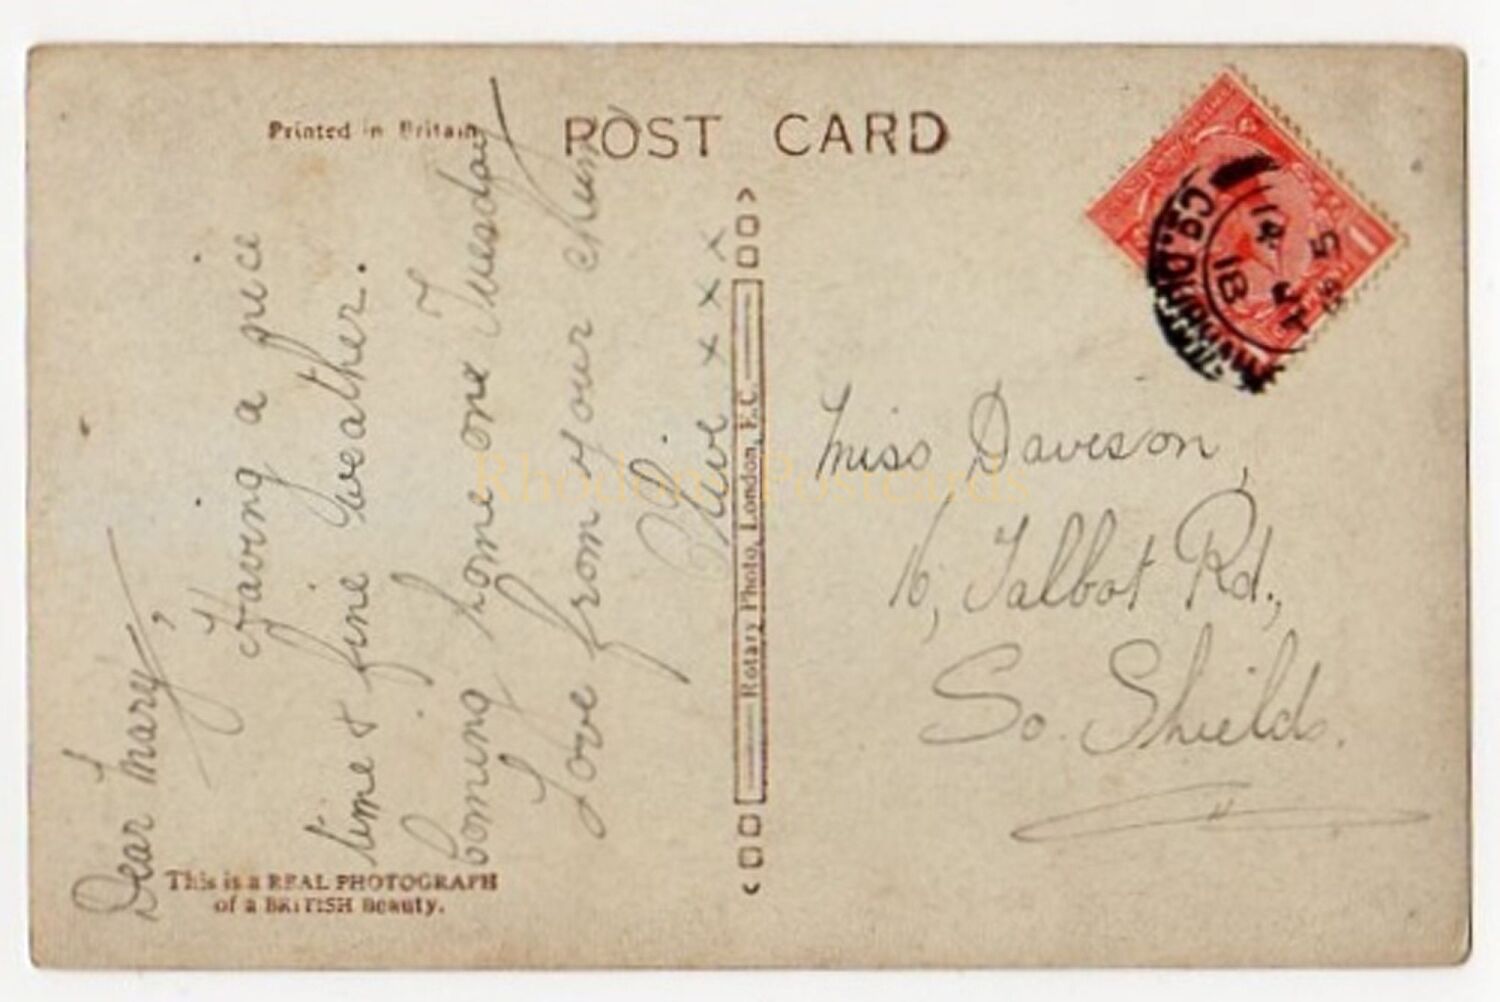 Printed in Britain
POST CARD
Dear Mary,
Having a nice
time & fine weather.
Coming home one Tuesday
Love from your chum
Olive x x x
Rotary Photo, London, E.C.
Miss Davison,
16, Talbot Rd.,
So. Shields.
This is a REAL PHOTOGRAPH
of a BRITISH Beauty.
CO. DURHAM
18
Rhodons Postcards